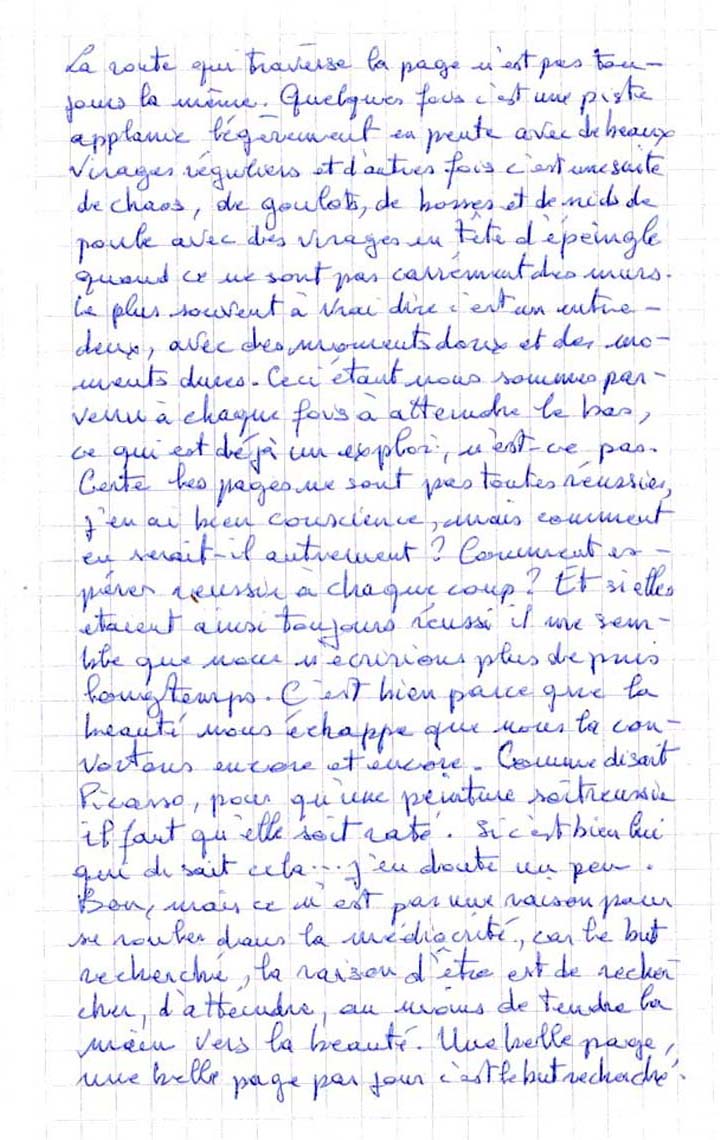 La route qui traverse la page n'est pas tou-
jours la même. Quelques fois c'est une piste
applanie légèrement en pente avec de beaux
virages réguliers et d'autres fois c'est une suite
de chaos, de goulots, de bosses et de nids de
poule avec des virages en tête d'épeingle
quand ce ne sont pas carrément des murs.
Le plus souvent à vrai dire c'est un entre-
deux, avec des moments doux et des mo-
ments dures. Ceci étant nous sommes par-
venu à chaque fois à atteindre le bas,
ce qui est déjà un exploi, n'est-ce pas.
Certe les pages ne sont pas toutes réussies,
j'en ai bien conscience, mais comment
en serait-il autrement ? Comment es-
pérer reussir à chaque coup ? Et si elles
etaient ainsi toujours réussi il me sem-
ble que nous n'écririons plus depuis
longtemps. C'est bien parce que la
beauté nous échappe que nous la con-
voitons encore et encore. Comme disait
Picasso, pour qu'une peinture soit reussie
il faut qu'elle soit raté. Si c'est bien lui
qui disait cela... j'en doute un peu.
Bon, mais ce n'est pas une raison pour
se rouler dans la médiocrité, car le but
recherché, la raison d'être est de recher
cher, d'atteindre, au moins de tendre la
main vers la beauté. Une belle page,
une belle page par jour c'est le but recherché.